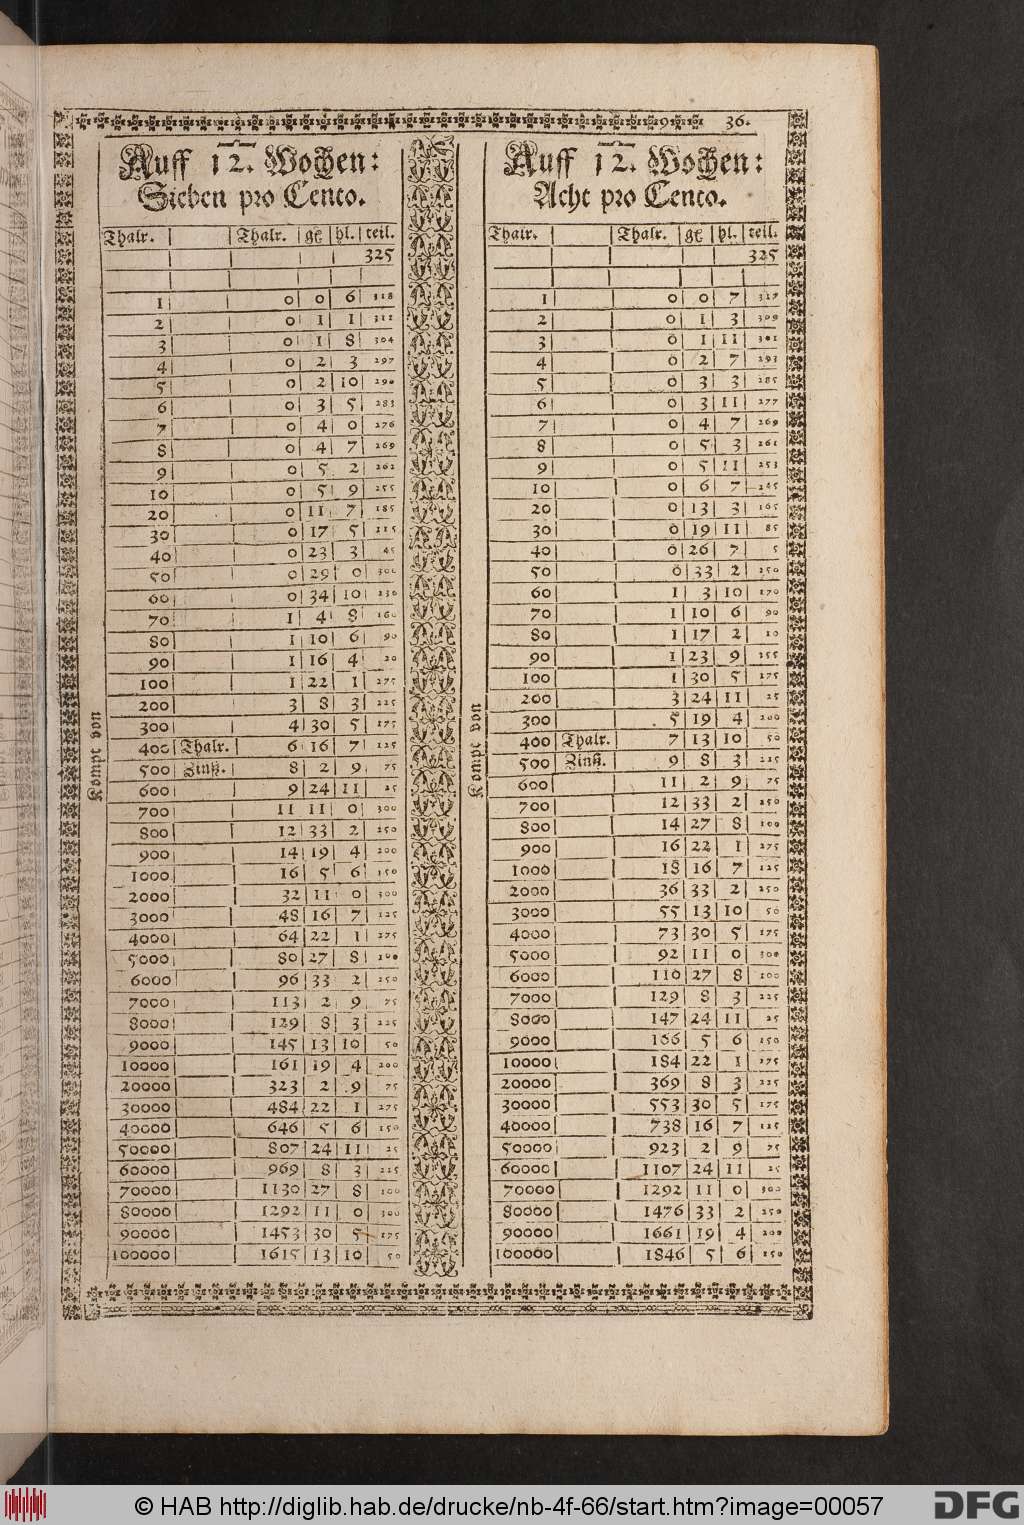 36.
Auff 12. Wochen:
Sieben pro Cento.
Thalr. Thalr. gl hl. teil.
325
1 0 0 6 318
2 0 1 1 311
3 0 1 8 304
4 0 2 3 297
5 0 2 10 290
6 0 3 5 283
7 0 4 0 276
8 0 4 7 269
9 0 5 2 262
10 0 5 9 255
20 0 11 7 185
30 0 17 5 115
40 0 23 3 45
50 0 29 0 300
60 0 34 10 230
70 1 4 8 160
80 1 10 6 90
90 1 16 4 20
100 1 22 1 275
200 3 8 3 225
300 4 30 5 175
400 Thalr. 6 16 7 125
500 Zinß. 8 2 9 75
600 9 24 11 25
700 11 11 0 300
800 12 33 2 250
900 14 19 4 200
1000 16 5 6 150
2000 32 11 0 300
3000 48 16 7 125
4000 64 22 1 275
5000 80 27 8 100
6000 96 33 2 250
7000 113 2 9 75
8000 129 8 3 225
9000 145 13 10 50
10000 161 19 4 200
20000 323 2 9 75
30000 484 22 1 275
40000 646 5 6 150
50000 807 24 11 25
60000 969 8 3 225
70000 1130 27 8 100
80000 1292 11 0 300
90000 1453 30 5 175
100000 1615 13 10 50
Kompt von
Auff 12. Wochen:
Acht pro Cento.
Thalr. Thalr. gl hl. teil.
325
1 0 0 7 317
2 0 1 3 309
3 0 1 11 301
4 0 2 7 293
5 0 3 3 285
6 0 3 11 277
7 0 4 7 269
8 0 5 3 261
9 0 5 11 253
10 0 6 7 245
20 0 13 3 165
30 0 19 11 85
40 0 26 7 5
50 0 33 2 250
60 1 3 10 170
70 1 10 6 90
80 1 17 2 10
90 1 23 9 255
100 1 30 5 175
200 3 24 11 25
300 5 19 4 200
400 Thalr. 7 13 10 50
500 Zinß. 9 8 3 225
600 11 2 9 75
700 12 33 2 250
800 14 27 8 100
900 16 22 1 275
1000 18 16 7 125
2000 36 33 2 250
3000 55 13 10 50
4000 73 30 5 175
5000 92 11 0 300
6000 110 27 8 100
7000 129 8 3 225
8000 147 24 11 25
9000 166 5 6 150
10000 184 22 1 275
20000 369 8 3 225
30000 553 30 5 175
40000 738 16 7 125
50000 923 2 9 75
60000 1107 24 11 25
70000 1292 11 0 300
80000 1476 33 2 250
90000 1661 19 4 200
100000 1846 5 6 150
Kompt von
© HAB http://diglib.hab.de/drucke/nb-4f-66/start.htm?image=00057
DFG